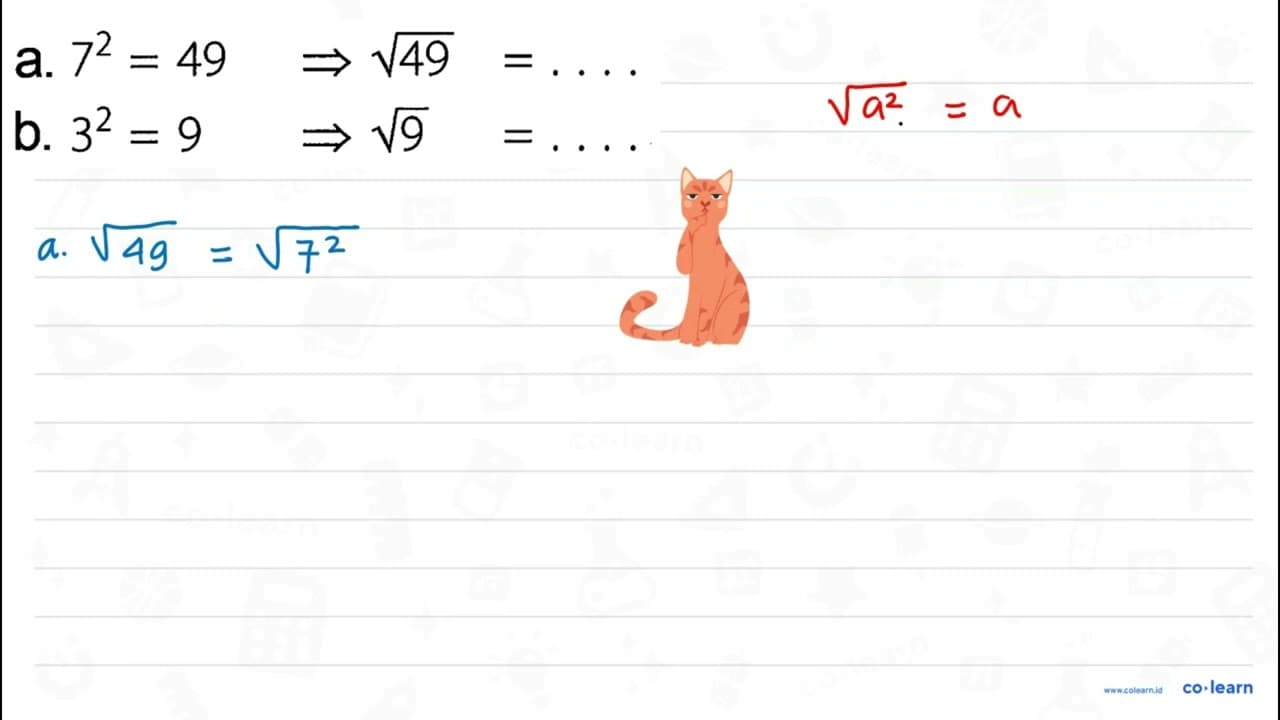 a. 7² = 49 ⇒ √49 = . . . .
b. 3² = 9 ⇒ √9 = . . . .
√a² = a
a. √49 = √7²
co·learn
www.colearn.id co·learn